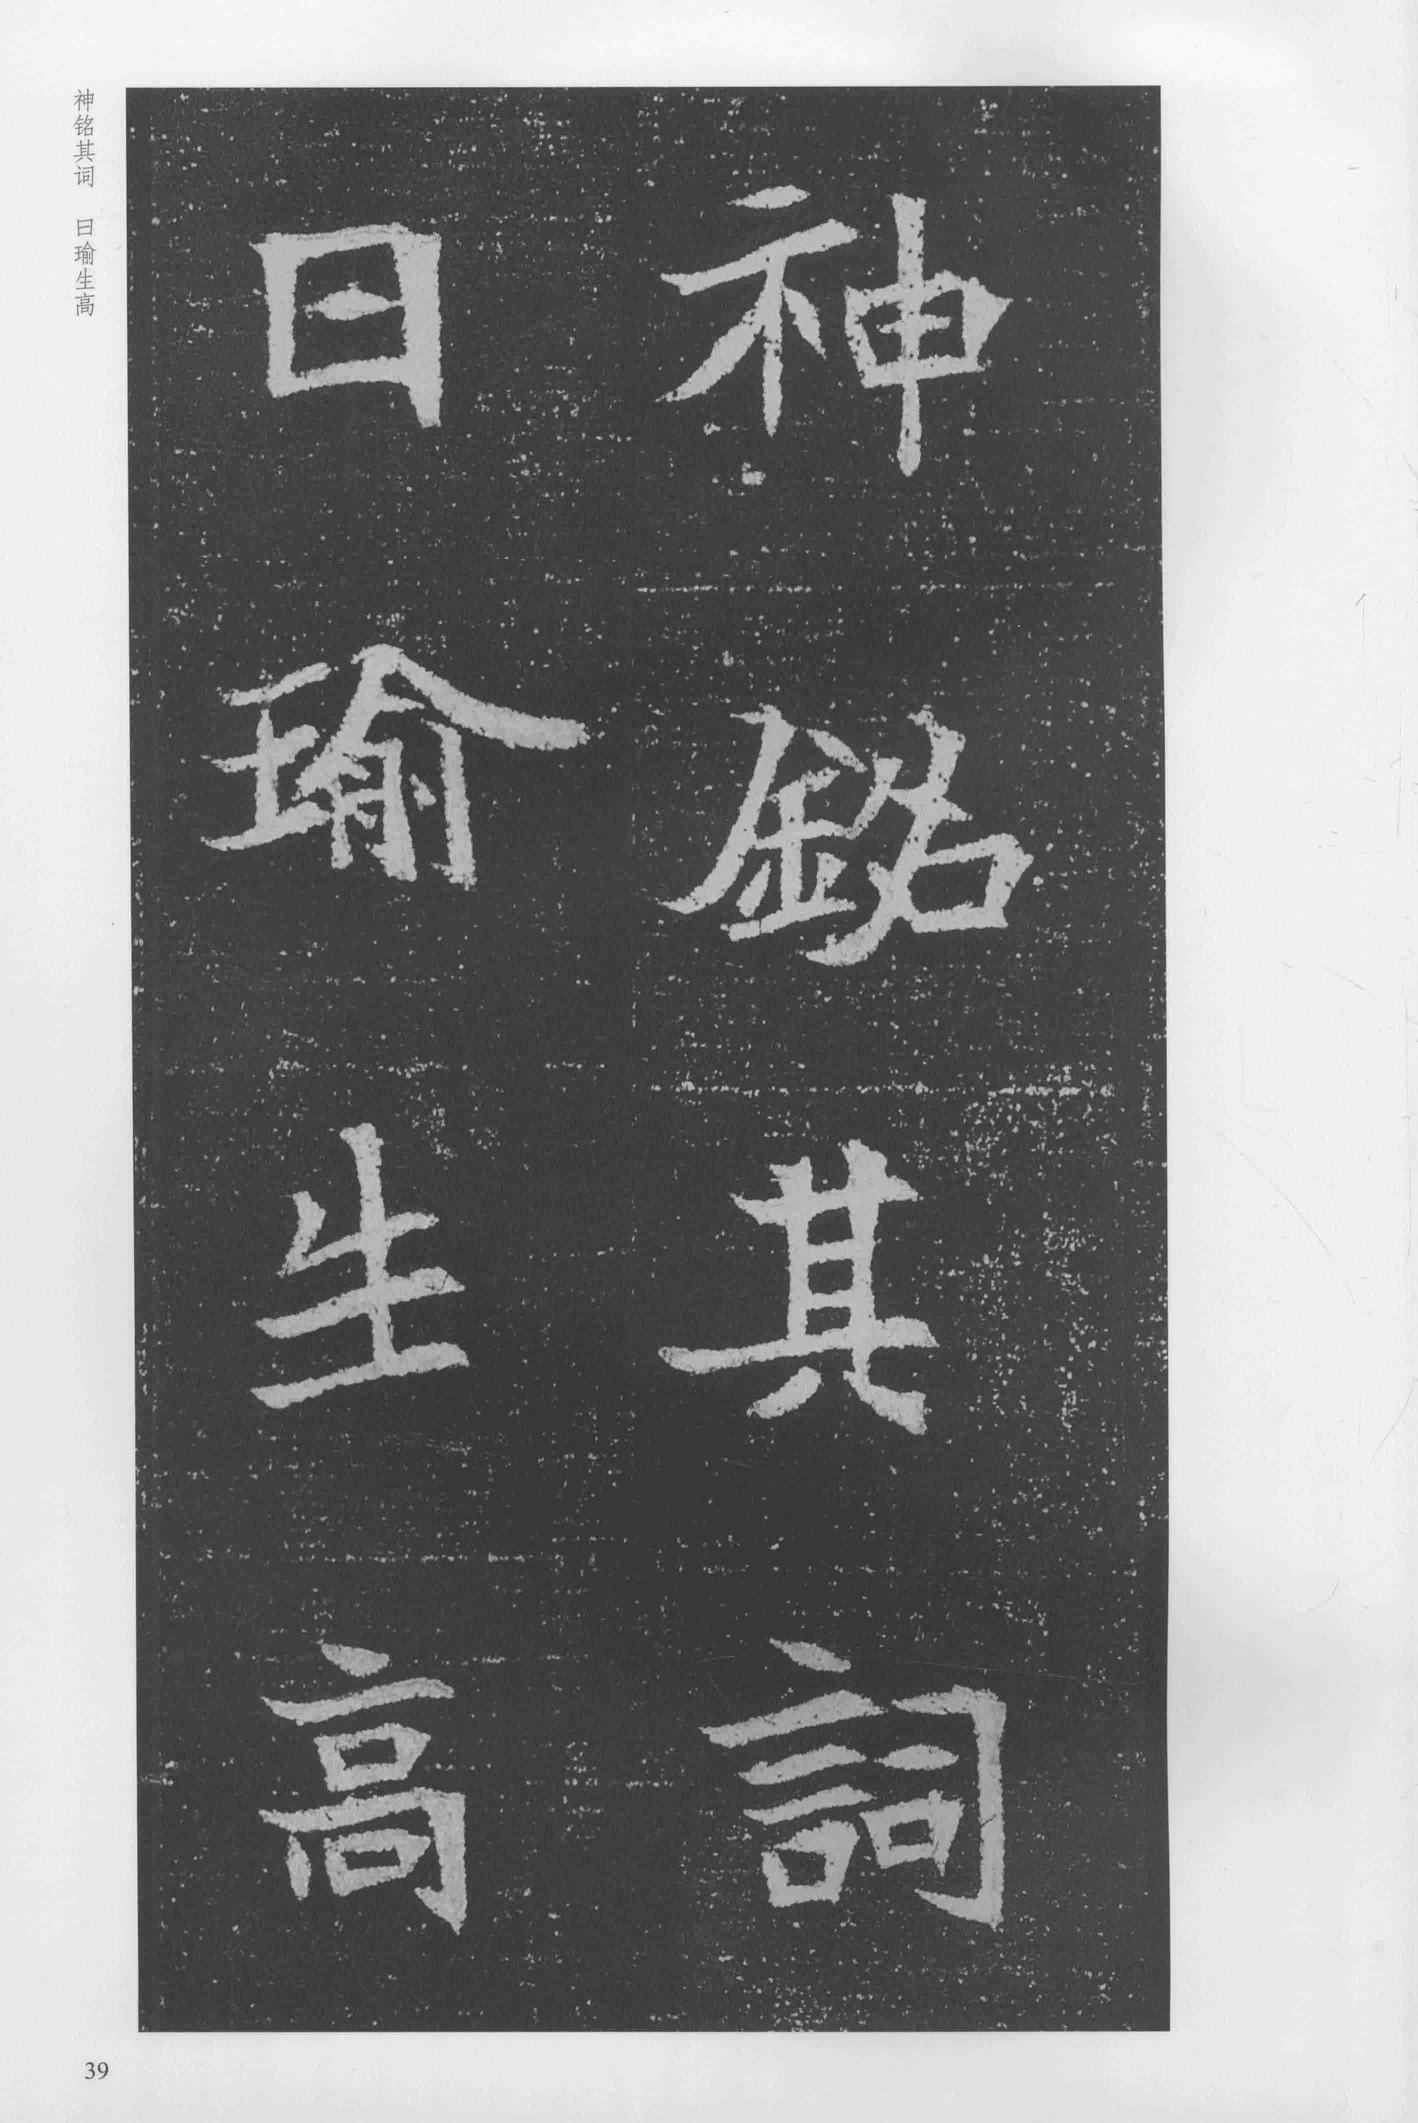 神銘其詞
曰瑜生高
神铭其词　曰瑜生高
39